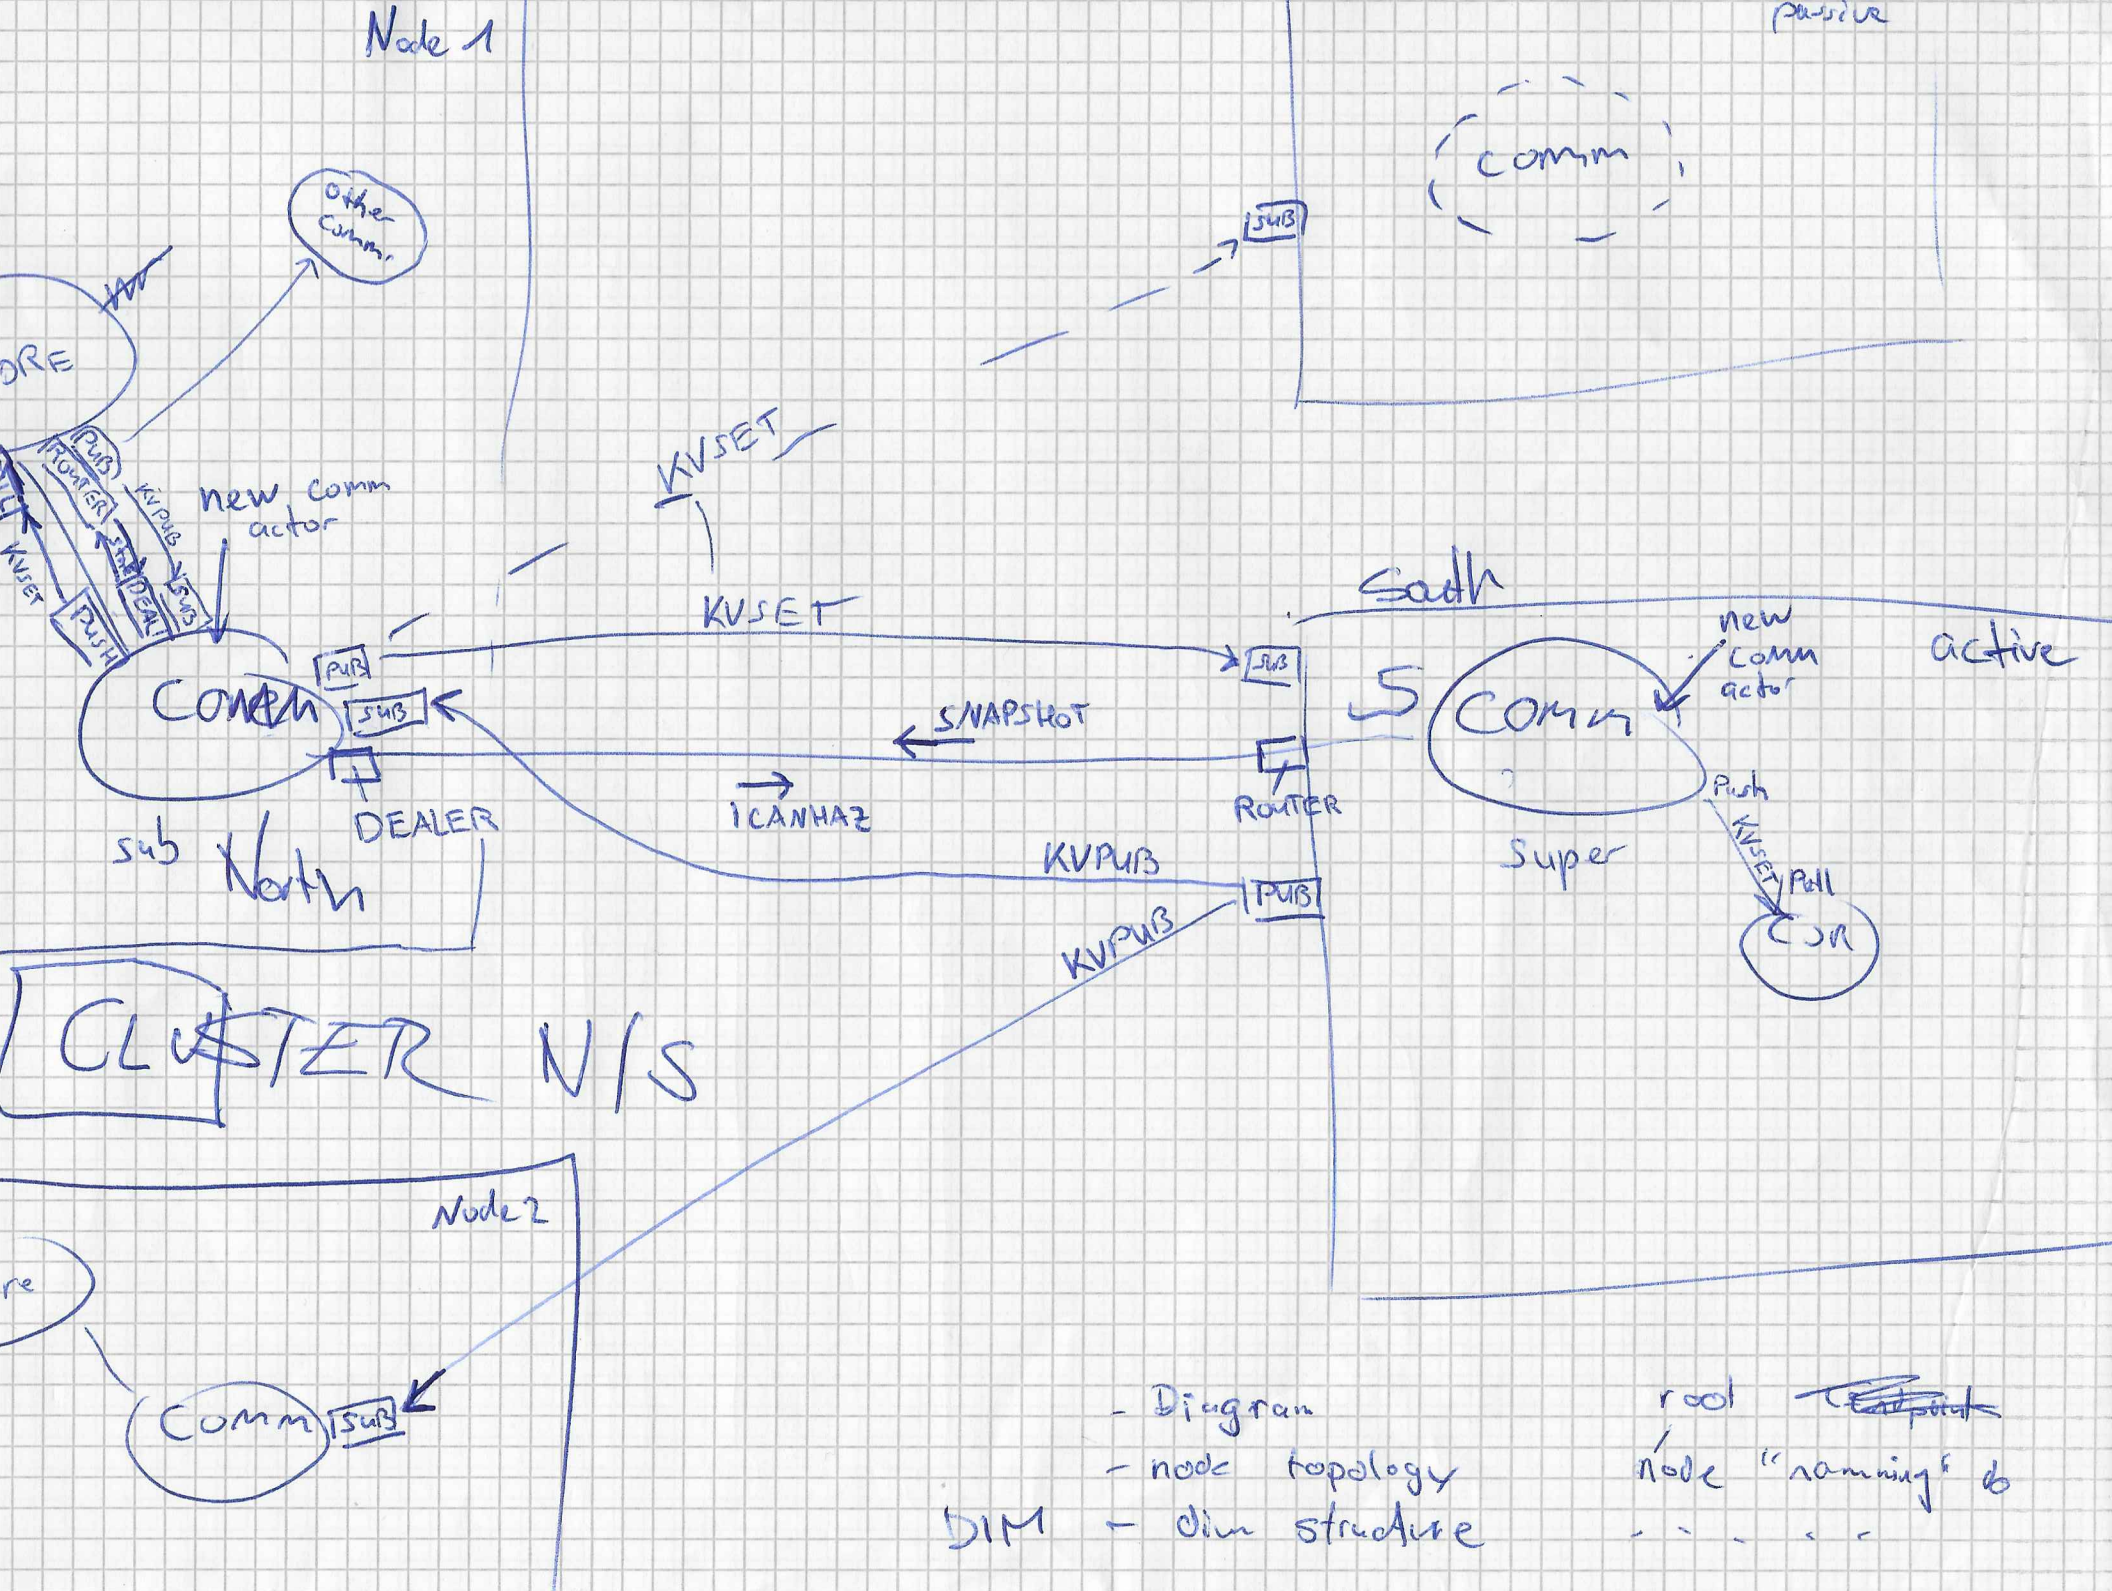 Node 1
passive
Other
Comm.
comm
SUB
ORE
PUB
ROUTER
KVPUB
new comm
actor
KVSET
KVSET
PUSH
DEAL
SUB
KVSET
South
new
comm
actor
active
PUB
SUB
Comm
SUB
SNAPSHOT
S
Comm
DEALER
ICANHAZ
ROUTER
Push
KVSET
Pull
COR
sub
North
super
KVPUB
PUB
KVPUB
CLUSTER N/S
Node 2
re
Comm
SUB
- Diagram
- node topology
DIM - dim structure
root
node "namning"